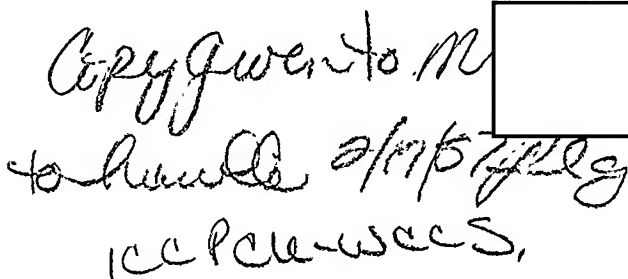 Copy given to M
to handle 2/17/57
1cc PCH-WSCCS.